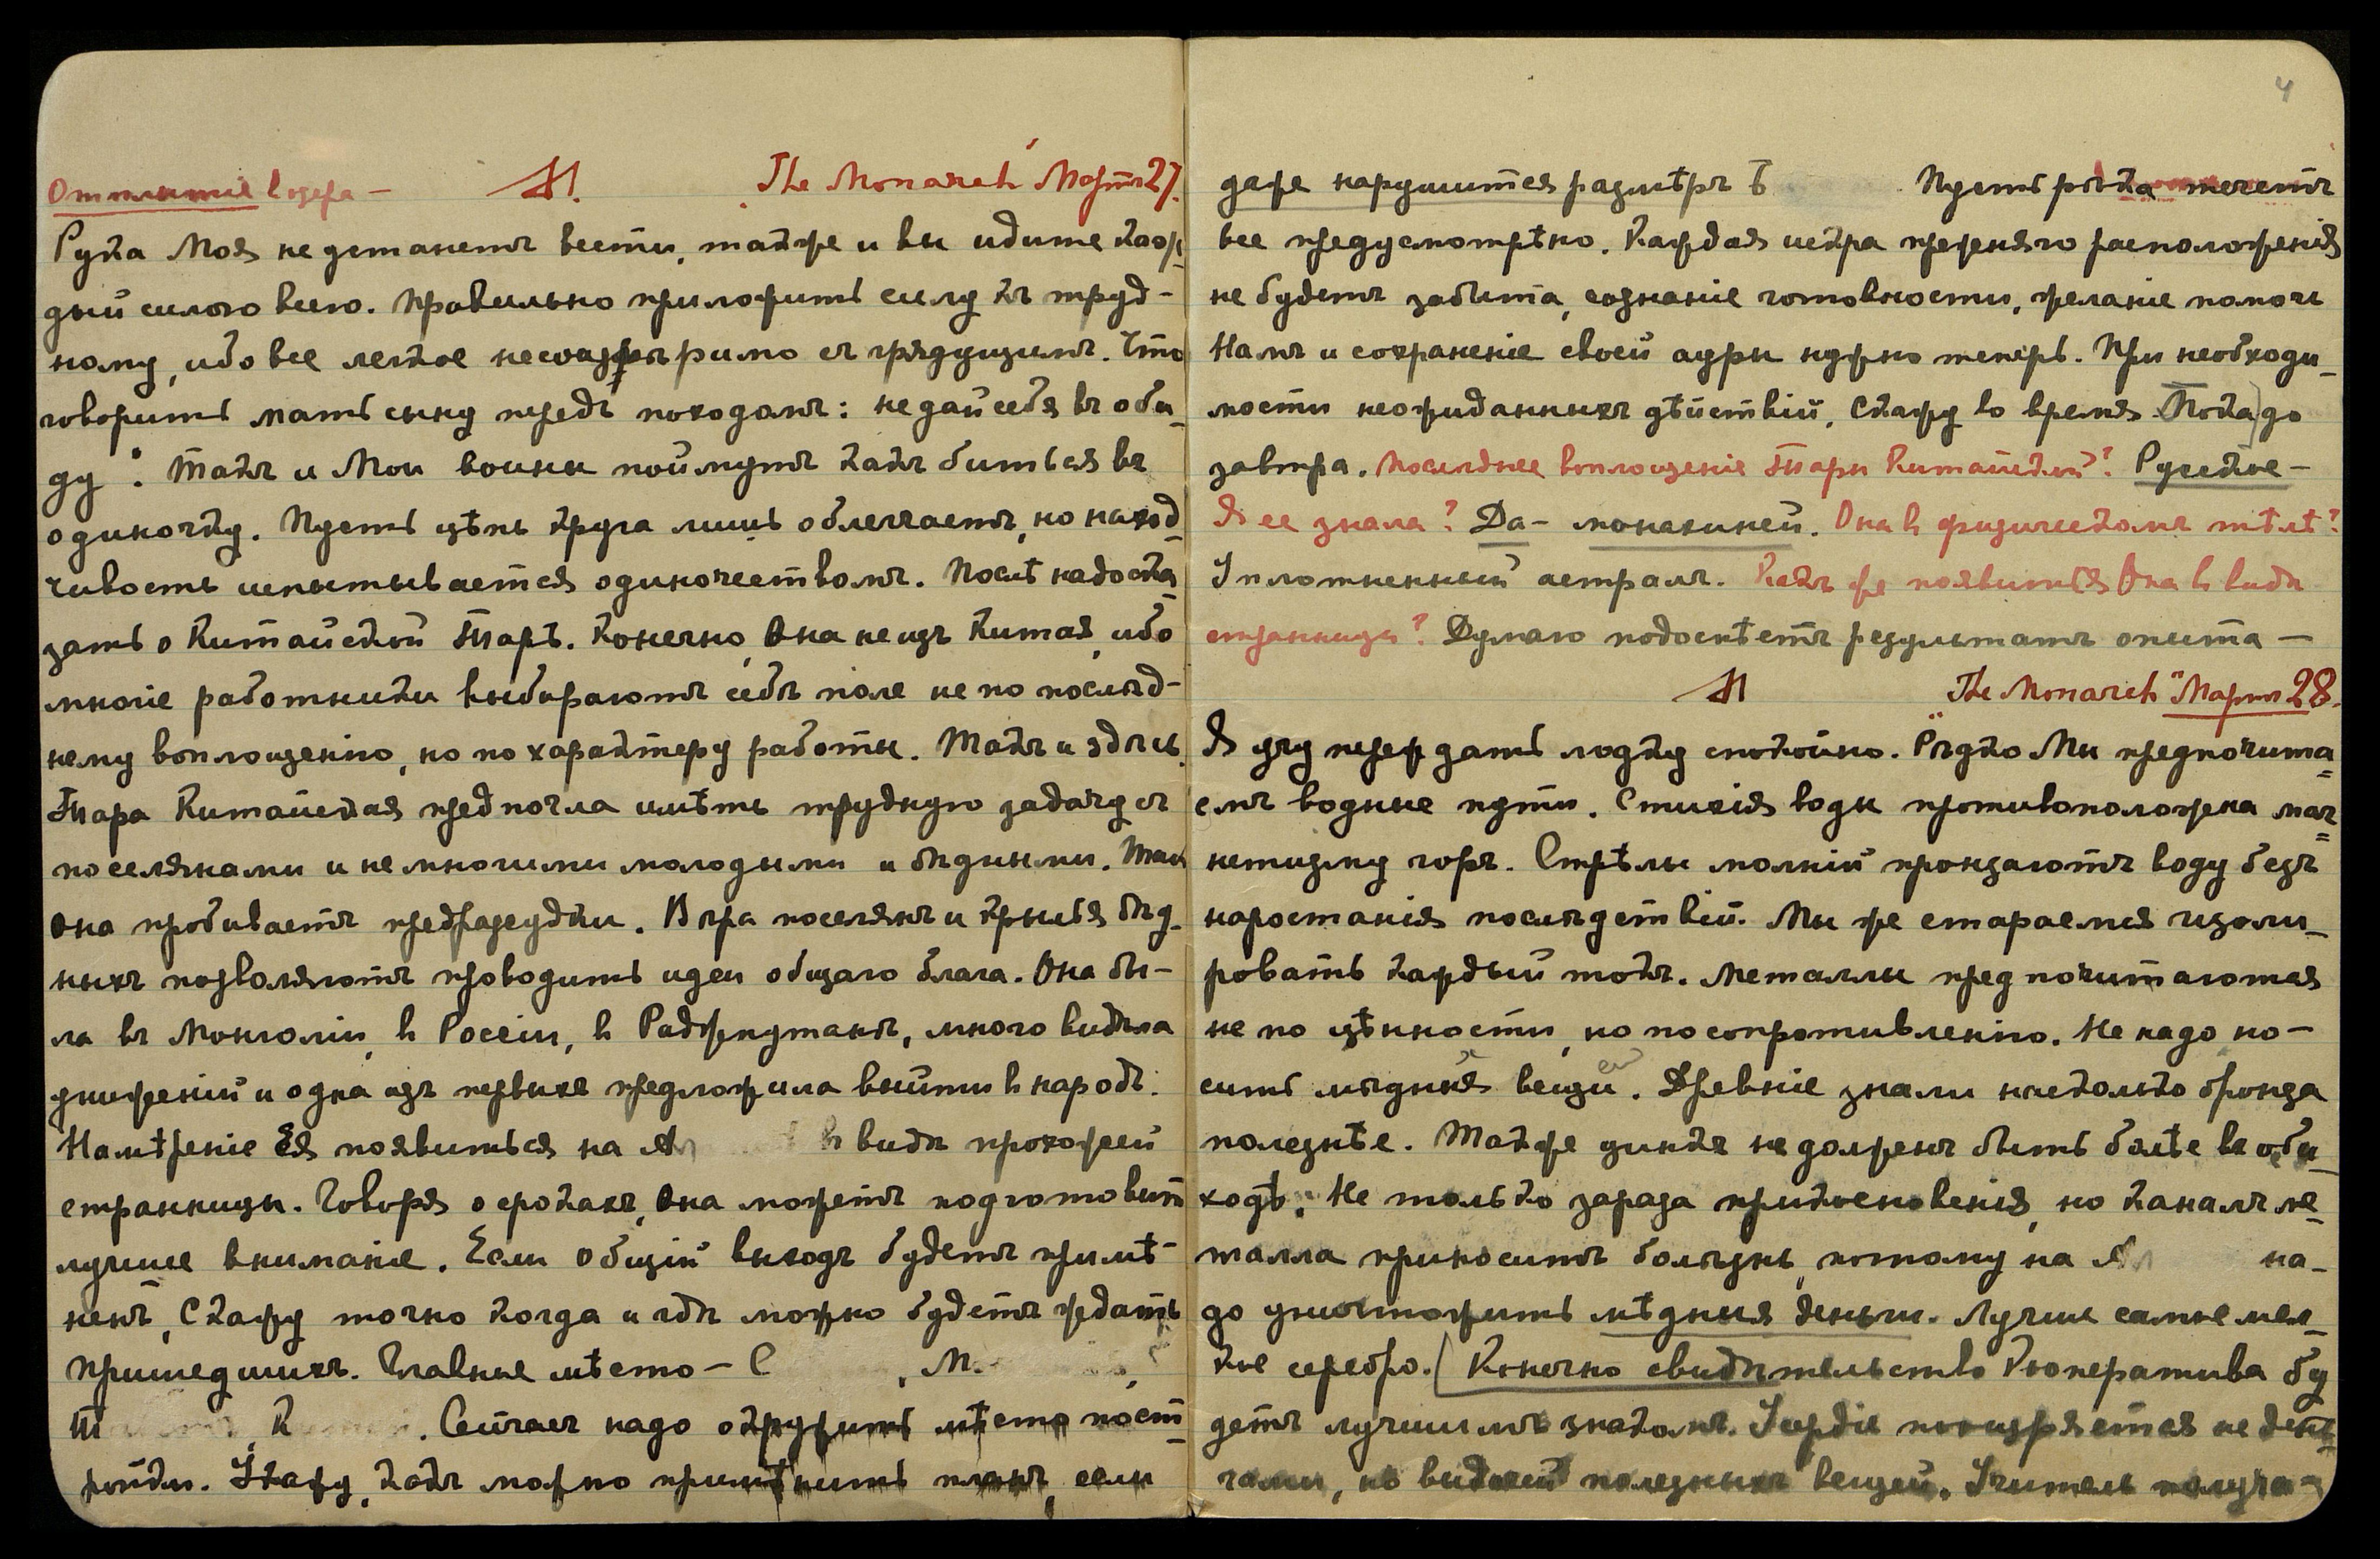 Отплытіе вчера — М. "The Monarch" Мартъ 27.
Рука Моя не устанетъ вести, также и вы идите каж-
дый силою всею. Правильно приложить силу къ труд-
ному, ибо все легкое несоизмѣримо съ грядущимъ. Что
говоритъ мать сыну передъ походомъ: не дай себя въ оби-
ду. Такъ и Мои воины поймутъ какъ биться въ
одиночку. Пусть цѣпь круга лишь облегчаетъ, но наход-
чивость испытывается одиночествомъ. Послѣ надо ска-
зать о Китайской Тарѣ. Конечно, Она не изъ Китая, ибо
многіе работники выбираютъ себѣ поле не по послѣд-
нему воплощенію, но по характеру работы. Такъ и здѣсь,
Тара Китайская предпочла имѣть трудную задачу съ
поселянами и немногими молодыми и бѣдными. Такъ
Она пробиваетъ предразсудки. Вѣра поселянъ и крылья бѣд-
ныхъ позволяютъ проводить идеи общаго блага. Она бы-
ла въ Монголіи, въ Россіи, въ Раджпутанѣ, много видѣла
униженій и одна изъ первыхъ предложила выйти въ народъ.
Намѣреніе Ея появиться на Ал въ видѣ прохожей
странницы. Говоря о срокахъ, Она можетъ подготовить
лучшее вниманіе. Если общій выходъ будетъ примѣ-
ненъ, Скажу точно когда и гдѣ можно будетъ ждать
пришедшихъ. Главные мѣсто — С , М. ,
Т , К . Сейчасъ надо окружить мѣсто пост-
ройки. Укажу, какъ можно примѣнить планъ, если
4
даже нарушится размѣръ Б Пусть рѣка течетъ
все предусмотрѣно. Каждая искра прежняго расположенія
не будетъ забыта, сознаніе готовности, желаніе помочь
Намъ и сохраненіе своей ауры нужно теперь. При необходи-
мости неожиданныхъ дѣйствій, Скажу во время. Пока) до
завтра. Послѣднее воплощеніе Тары Китайской? Русское —
Я ее знала? Да — монахиней. Она въ физическомъ тѣлѣ?
Уплотненный астралъ. Какъ же появиться Она въ видѣ
странницы? Думаю подоспѣетъ результатъ опыта —
М "The Monarch" Мартъ 28.
Я учу переждать лодку спокойно. Рѣдко Мы предпочита-
емъ водные пути. Стихія воды противоположена маг-
нетизму горъ. Стрѣлы молній пронзаютъ воду безъ
наростанія послѣдствій. Мы же стараемся изоли-
ровать каждый токъ. Металлы предпочитаются
не по цѣнности, но по сопротивленію. Не надо но-
сить мѣдныя вещи. Древніе знали насколько бронза
полезнѣе. Также цинкъ не долженъ быть болѣе въ оби-
ходѣ. Не только зараза прикосновенія, но каналъ ме-
талла приноситъ болѣзнь, потому на Ал на-
до уничтожить мѣдныя деньги. Лучше самые мел-
кое серебро. (Конечно свидѣтельство Кооператива бу
детъ лучшимъ знакомъ. Усердіе поощряется не день-
гами, но выдачей полезныхъ вещей. Учитель получа-